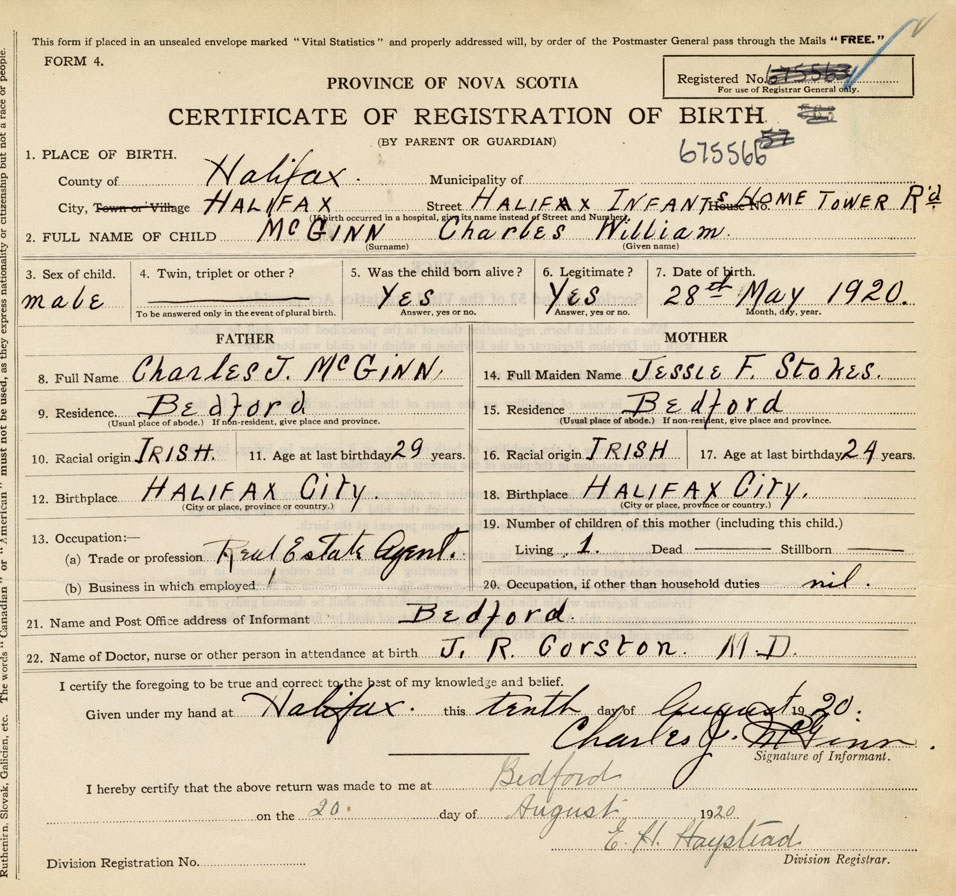 This form if placed in an unsealed envelope marked "Vital Statistics" and properly addressed will, by order of the Postmaster General pass through the Mails "FREE."
FORM 4.
Registered No. 675563
For use of Registrar General only.
PROVINCE OF NOVA SCOTIA
CERTIFICATE OF REGISTRATION OF BIRTH
(BY PARENT OR GUARDIAN)
675566
1. PLACE OF BIRTH.
County of Halifax. Municipality of
City, Town or Village HALIFAX Street HALIFAX INFANTS HOME TOWER R'd House No.
(If birth occurred in a hospital, give its name instead of Street and Number)
2. FULL NAME OF CHILD McGINN Charles William.
(Surname) (Given name)
3. Sex of child. 4. Twin, triplet or other? 5. Was the child born alive? 6. Legitimate? 7. Date of birth.
male YES YES 28th May 1920.
To be answered only in the event of plural birth. Answer, yes or no. Answer, yes or no. Month, day, year.
FATHER
8. Full Name Charles J. McGINN.
9. Residence Bedford
(Usual place of abode.) If non-resident, give place and province.
10. Racial origin IRISH. 11. Age at last birthday 29 years.
12. Birthplace HALIFAX City.
(City or place, province or country.)
13. Occupation:—
(a) Trade or profession Real Estate Agent.
(b) Business in which employed
MOTHER
14. Full Maiden Name JESSIE F. Stokes.
15. Residence Bedford
(Usual place of abode.) If non-resident, give place and province.
16. Racial origin IRISH 17. Age at last birthday 24 years.
18. Birthplace HALIFAX City.
(City or place, province or country.)
19. Number of children of this mother (including this child.)
Living 1. Dead Stillborn
20. Occupation, if other than household duties nil.
21. Name and Post Office address of Informant Bedford.
22. Name of Doctor, nurse or other person in attendance at birth J. R. Corston. M.D.
I certify the foregoing to be true and correct to the best of my knowledge and belief.
Given under my hand at Halifax. this tenth day of August 1920.
Charles J. McGinn.
Signature of Informant.
I hereby certify that the above return was made to me at Bedford
on the 20. day of August 1920
E. H. Haystead
Division Registration No. Division Registrar.
Ruthenian, Slovak, Galician, etc. The words "Canadian" or "American" must not be used, as they express nationality or citizenship but not a race or people.